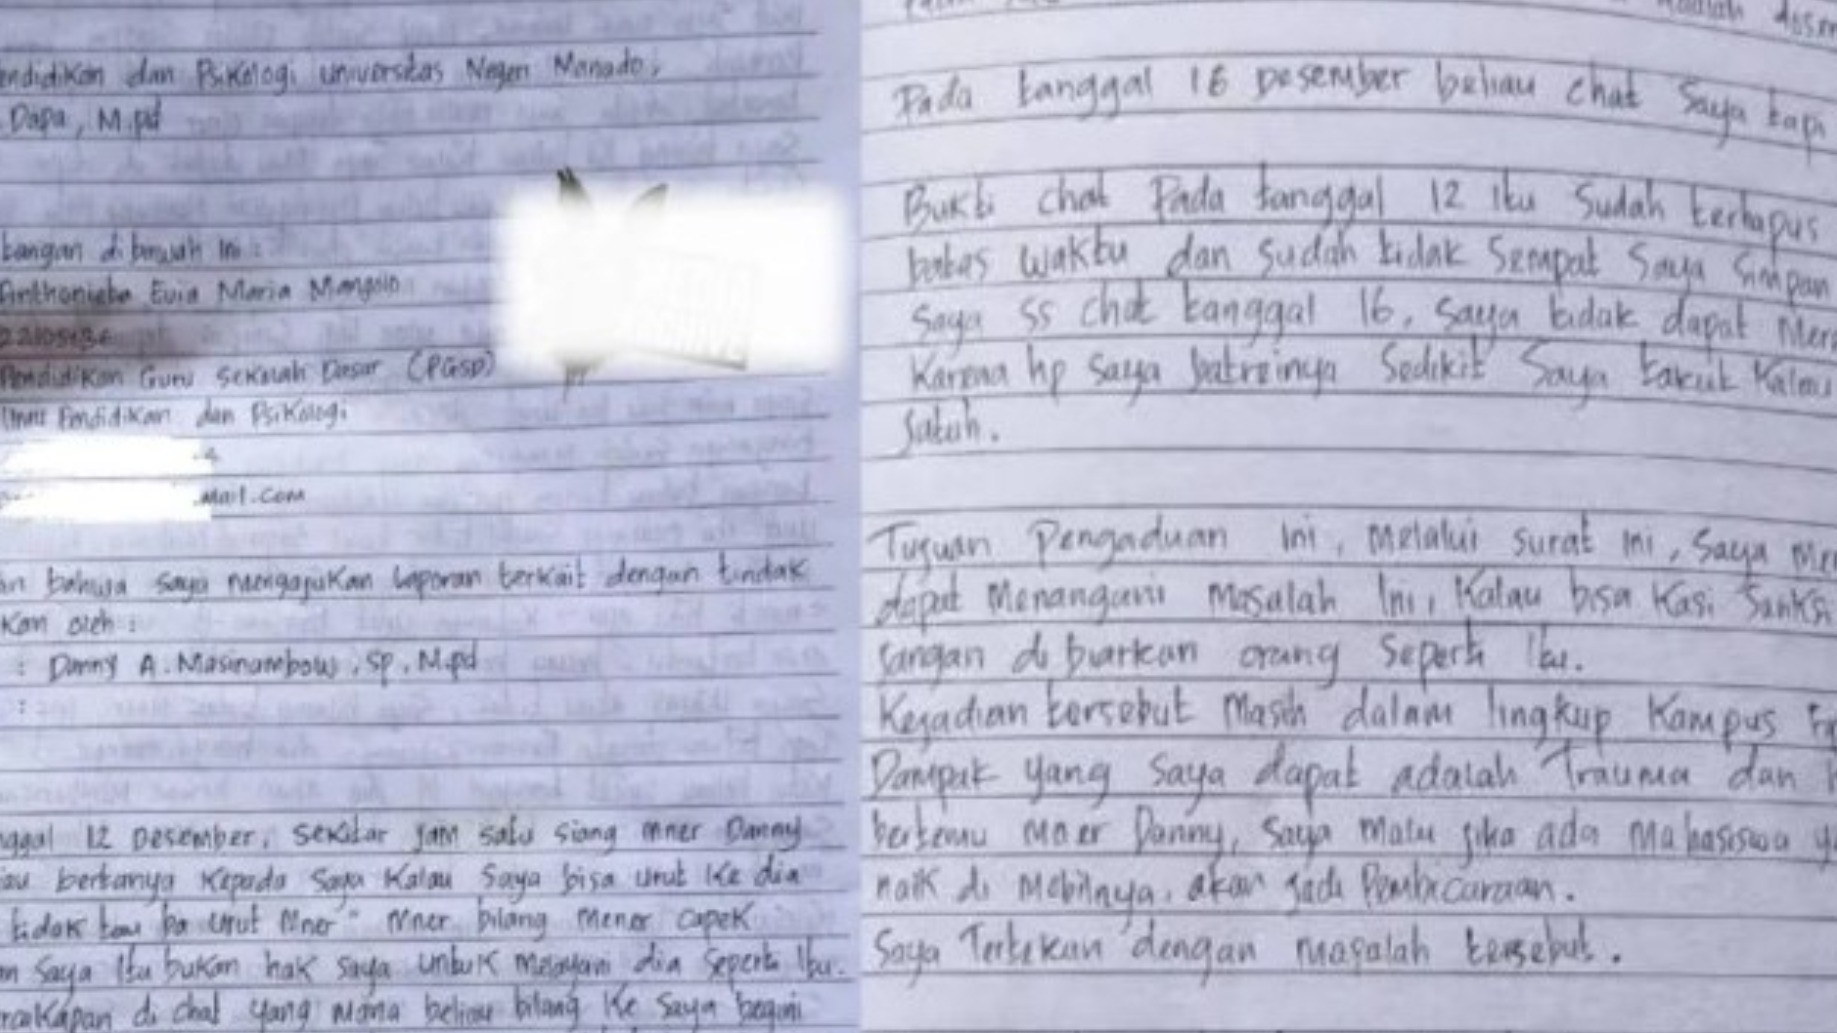 endidikan dan Psikologi universitas Negeri Manado,
Dapa, M.pd
tangan di bawah ini :
Anthonieta Evia Maria Mangolo
Pendidikan Guru Sekolah Dasar (PGSD)
Ilmu Pendidikan dan Psikologi
.mail.com
an bahwa saya mengajukan laporan terkait dengan tindak
kan oleh :
: Danny A. Masinambow, SP, M.pd
:
nggal 12 Desember, sekitar jam satu siang mner Danny
iau bertanya kepada saya kalau saya bisa urut ke dia
tidak tau ba urut mner" mner bilang mener capek
n saya itu bukan hak saya untuk melayani dia seperti itu.
rcakapan di chat yang mana beliau bilang ke saya begini
Pada tanggal 16 Desember beliau chat saya tapi
Bukti chat Pada tanggal 12 itu sudah terhapus
batas waktu dan sudah tidak sempat saya simpan
saya ss chat tanggal 16, saya tidak dapat Mer
Karena hp saya batreinya sedikit saya takut kalau
jatuh.
Tujuan Pengaduan ini, melalui surat ini, saya Me
dapat menangani masalah ini, kalau bisa kasi sanksi
jangan di biarkan orang seperti itu.
Kejadian tersebut masih dalam lingkup kampus
Dampak yang saya dapat adalah Trauma dan
bertemu mner Danny, saya malu jika ada mahasiswa y
naik di mobilnya, akan jadi Pembicaraan.
Saya Tertekan dengan masalah tersebut.